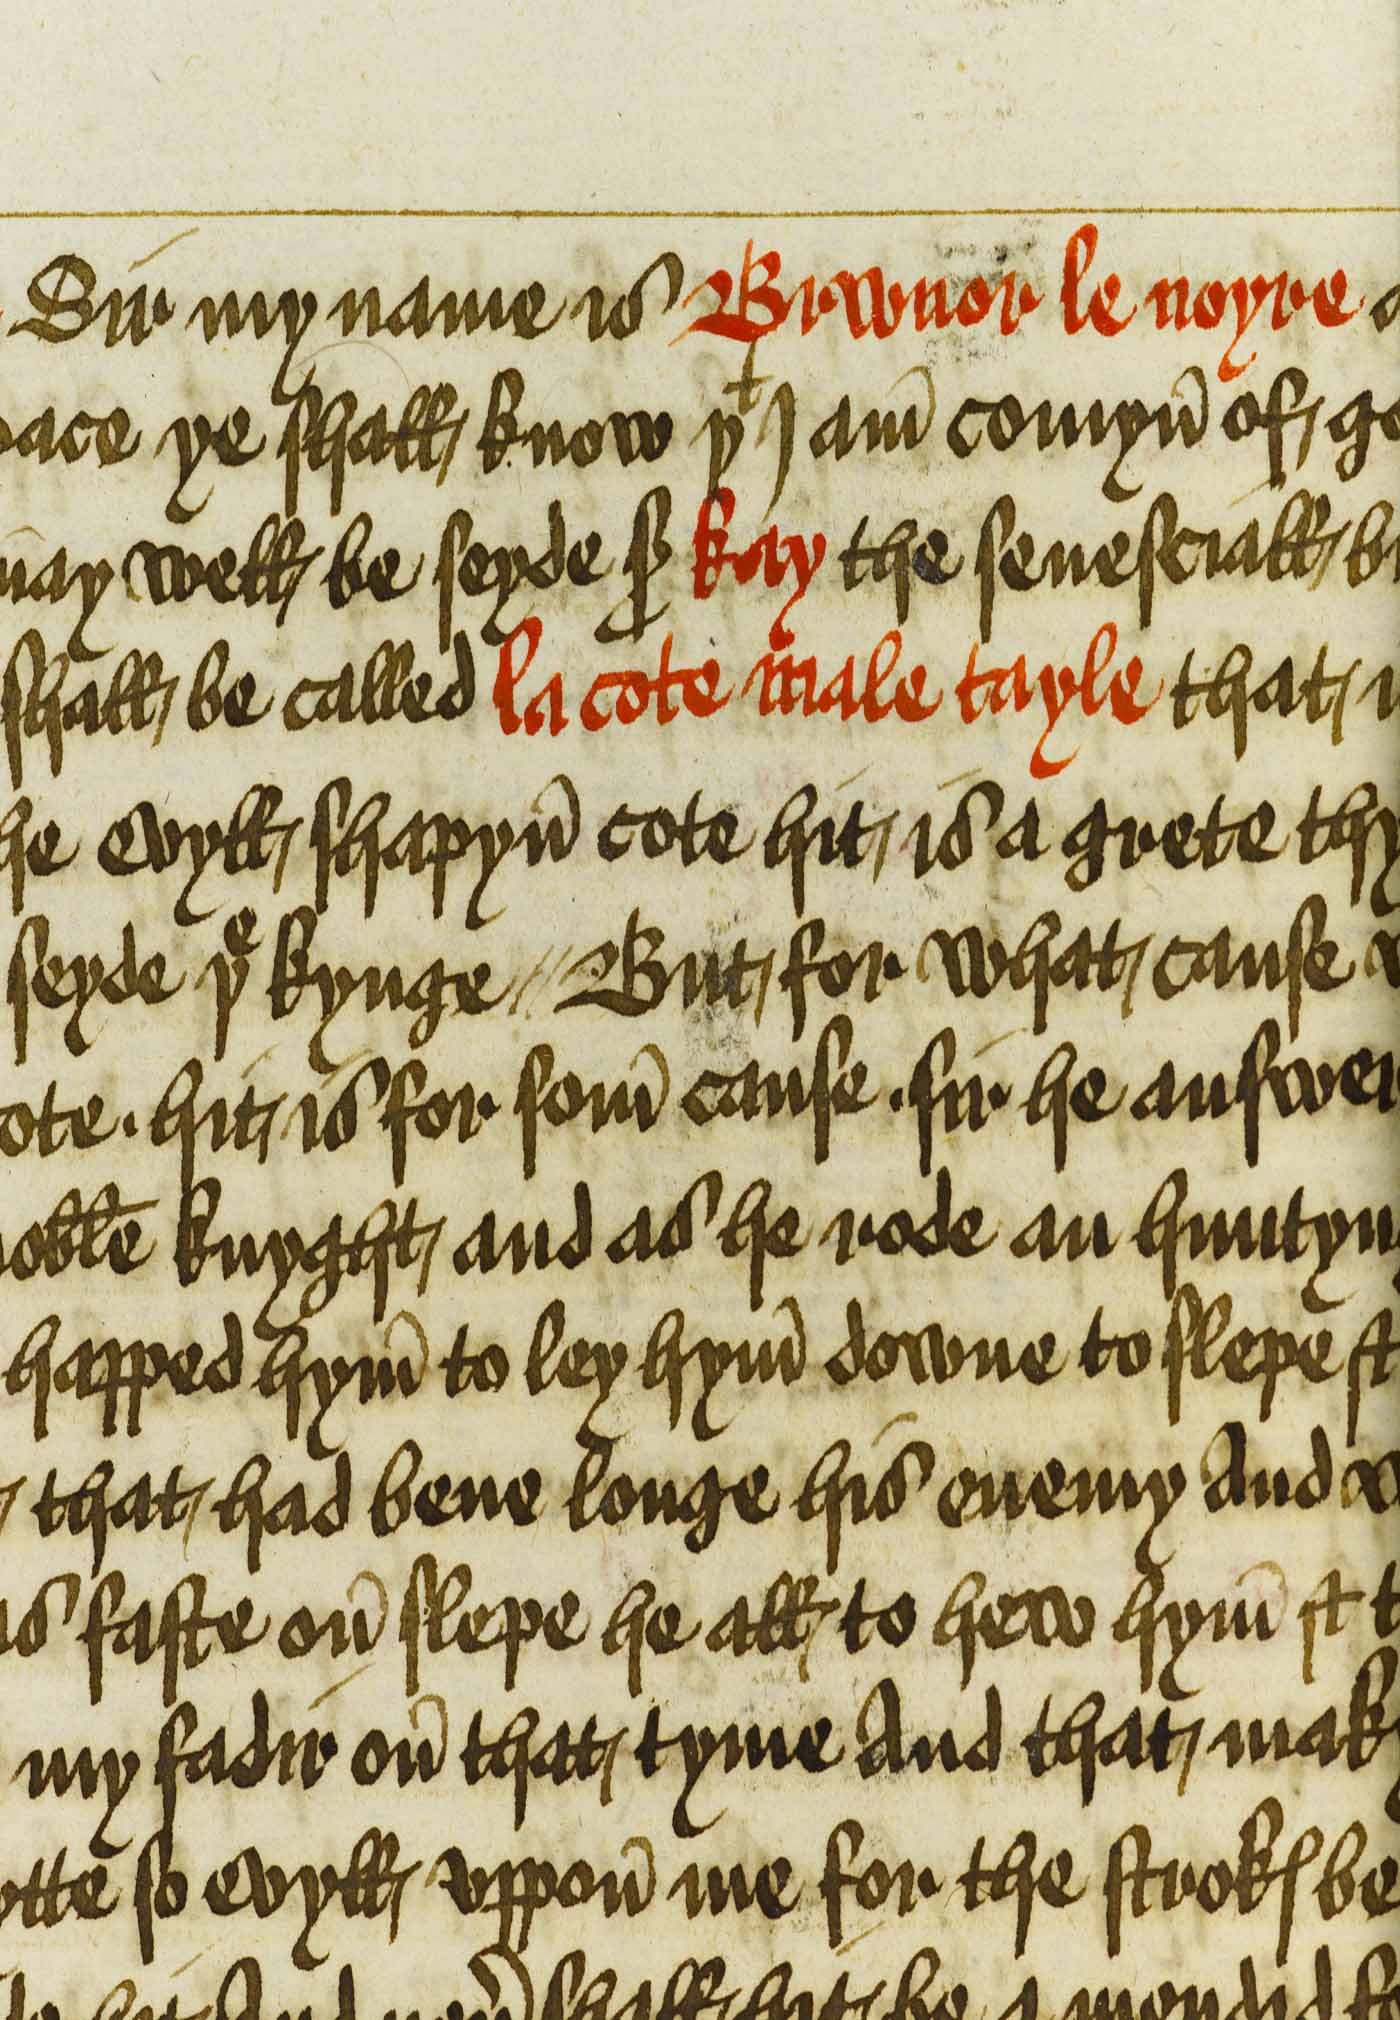 Sir my name is Brwnor le noyre
ye shall know þͭ I am comyn̄ of
well be seyde sͬ kay the senesciall
shall be called la cote male tayle that
evyll shapyn̄ cote hit is a grete
seyde þͤ kynge // But for what cause
hit is for som̄ cause . sir he answer
knyght and as he rode an huntyn
happed hym̄ to ley hym̄ downe to slepe &
that had bene longe his enemy And
faste on̄ slepe he all to hew hym̄ &
my fadir on̄ that tyme And that mak
so evyll vppon̄ me for the strokꝭ be
hit And shall hit be a mendid